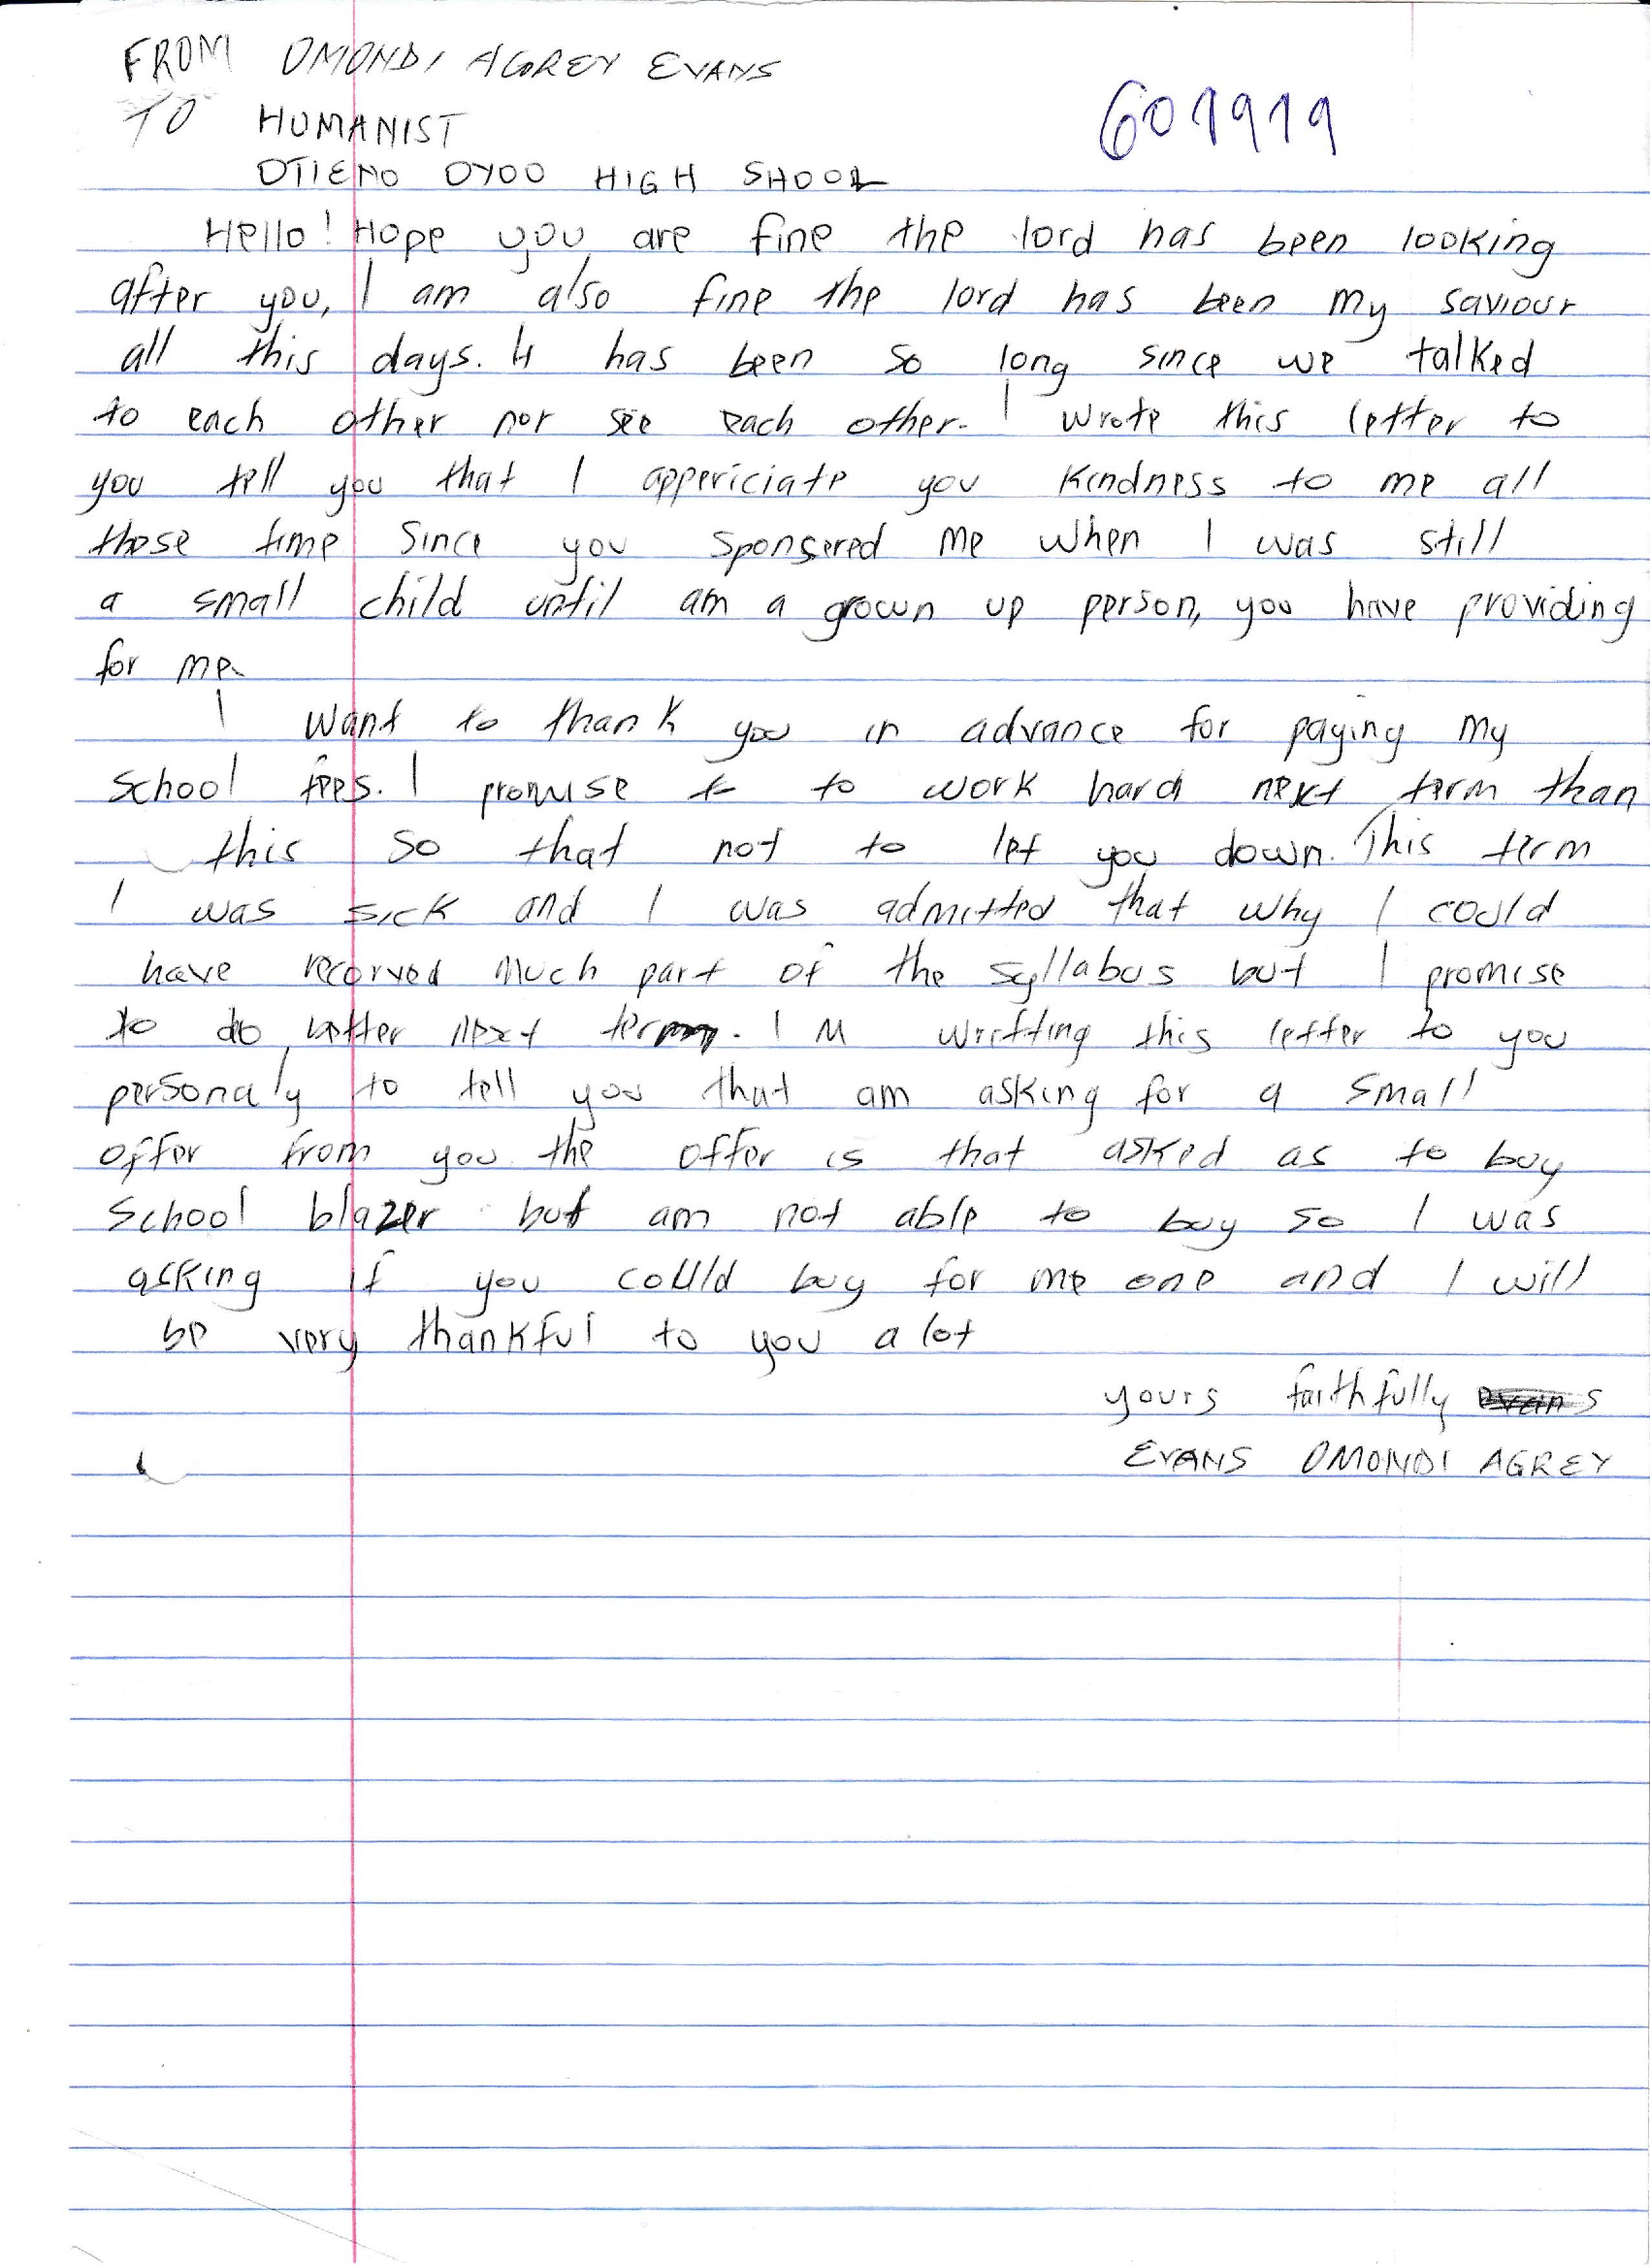 FROM OMONDI AGREY EVANS
TO HUMANIST
601919
OTIENO OYOO HIGH SHOOL
Hello! Hope you are fine the lord has been looking
after you, I am also fine the lord has been my saviour
all this days. It has been so long since we talked
to each other nor see each other. I wrote this letter to
you tell you that I appericiate you kindness to me all
those time since you sponsered me when I was still
a small child until am a grown up person, you have providing
for me.
I want to thank you in advance for paying my
school fees. I promise to work hard next term than
this so that not to let you down. This term
I was sick and I was admitted that why I could
have recorved much part of the syllabus but I promise
to do better next term. I M writting this letter to you
personaly to tell you that am asking for a small
offer from you the offer is that asked as to buy
school blazer but am not able to buy so I was
asking if you could buy for me one and I will
be very thankful to you a lot
yours faithfully
EVANS OMONDI AGREY